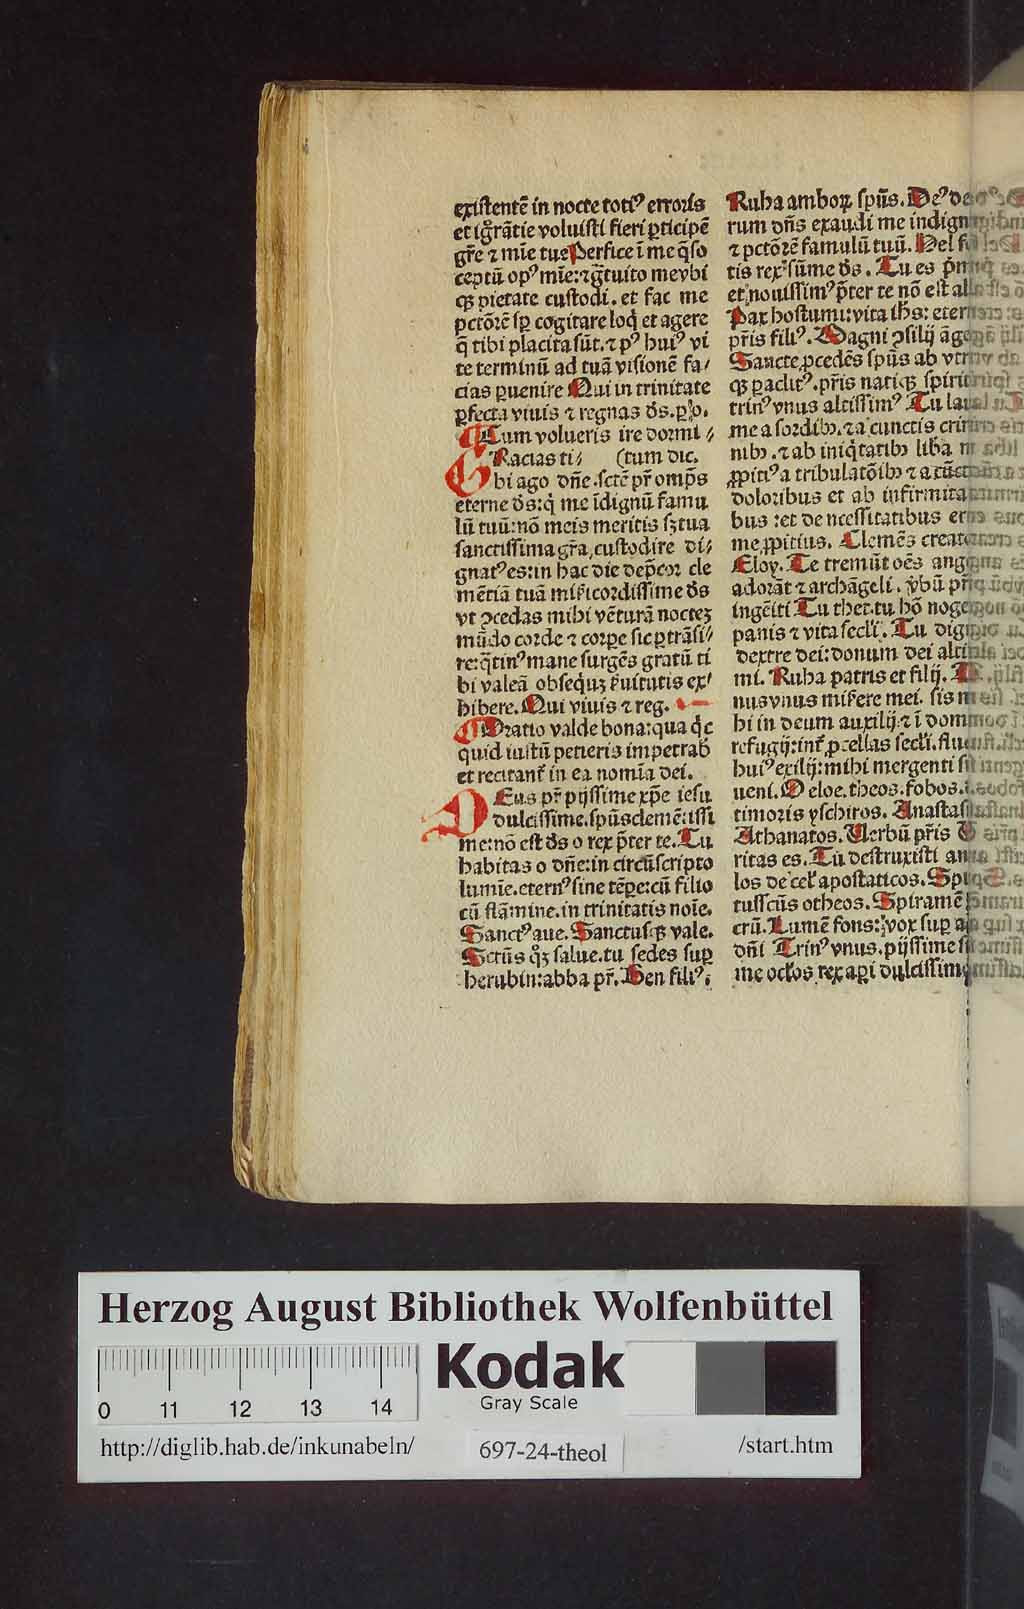 existentē in nocte totiꝰ erroris
et ignr̄atie voluisti fieri ꝑticipē
gr̄e ⁊ mīe tue Perfice ī me q̄so
ceptū opꝰ mīe: ⁊ gr̄tuito me vbi
qꝫ pietate custodi. et fac me
pctōrē sp̄ cogitare loq̇ et agere
q̄ tibi placita sūt. ⁊ pꝰ huiꝰ vi
te terminū ad tuā visionē fa⸗
cias ꝑuenire Qui in trinitate
ꝑfecta viuis ⁊ regnas d̄s. ꝑ o.
Cum volueris ire dormi⸗
GRacias ti⸗ (tum dic.
bi ago dn̄e. sctē pr̄ omp̄s
eterne d̄s: q̇ me īdignū famu
lū tuū: nō meis meritis sꝫ tua
sanctissima gr̄a, custodire di⸗
gnatꝰ es: in hac die dep̄cor cle
mētiā tuā mīcordissime d̄s
vt ꝯcedas mihi vēturā nocteꝫ
mūdo corde ⁊ corpe sic ꝑtrāsi⸗
re: q̄tinꝰ mane surgēs gratū ti
bi valeā obsequꝫ ẜuitutis ex⸗
hibere. Qui viuis ⁊ reg.
Oratio valde bona: qua q̇c
quid iustū petieris impetrab̄
et recitant̄ in ea nomīa dei.
DEus pr̄ pijssime xp̄e iesu
dulcissime. spūs clemētissi
me: nō est d̄s o rex p̄ter te. Tu
habitas o dn̄e: in circūscripto
lumīe. eternꝰ sine tēpe: cū filio
cū flāmine. in trinitatis noīe.
Sanctꝰ aue. Sanctusqꝫ vale.
Sctūs qꝫ salue. tu sedes suꝑ
herubin: abba pr̄. Ben filiꝰ.
Ruha amboꝝ spūs. Deꝰ deo
rum dn̄s exaudi me indign
⁊ pctōrē famulū tuū. Hel
tis rex sūme d̄s. Tu es
et nouissimꝰ p̄ter te nō est
Pax hostumi: vita ihs: eter
pr̄is filiꝰ. Magni ꝯsilij
Sancte ꝓcedēs spūs ab
qꝫ ꝑaclitꝰ. pr̄is natiqꝫ
trinꝰ vnus altissimꝰ Tu
me a sordibꝫ. ⁊ a cunctis
nibꝫ. ⁊ ab iniq̇tatibꝫ liba
ꝓpitiꝰ a tribulatōibꝫ ⁊ a
doloribus et ab infirmita
bus: et de necessitatibus
me ꝓpitius. Clemēs
Eloy. Te tremūt oēs
adorāt ⁊ archāgeli. ybū
ingēiti Tu thet. tu hō
panis ⁊ vita secli. Tu
dextre dei: donum dei
mi. Ruha patris et filij.
nus vnus miẜere mei. sis
bi in deum auxilij: ⁊ ī
refugij: inẜ ꝓcellas secli.
huiꝰ exilij: mihi mergenti
ueni. O eloe. theos. fobos.
timoris yschiros. Anastas
Athanatos. Uerbū pr̄is
ritas es. Tu destruxisti
los de cel' apostaticos.
tusscūs otheos. Spiramē
crū. Lumē fons: vox suꝑ
dn̄i Trinꝰ vnus. pijssime
me oclos rex aꝑi dulcissim
Herzog August Bibliothek Wolfenbüttel
0 11 12 13 14
Kodak
Gray Scale
http://diglib.hab.de/inkunabeln/
697-24-theol
/start.htm